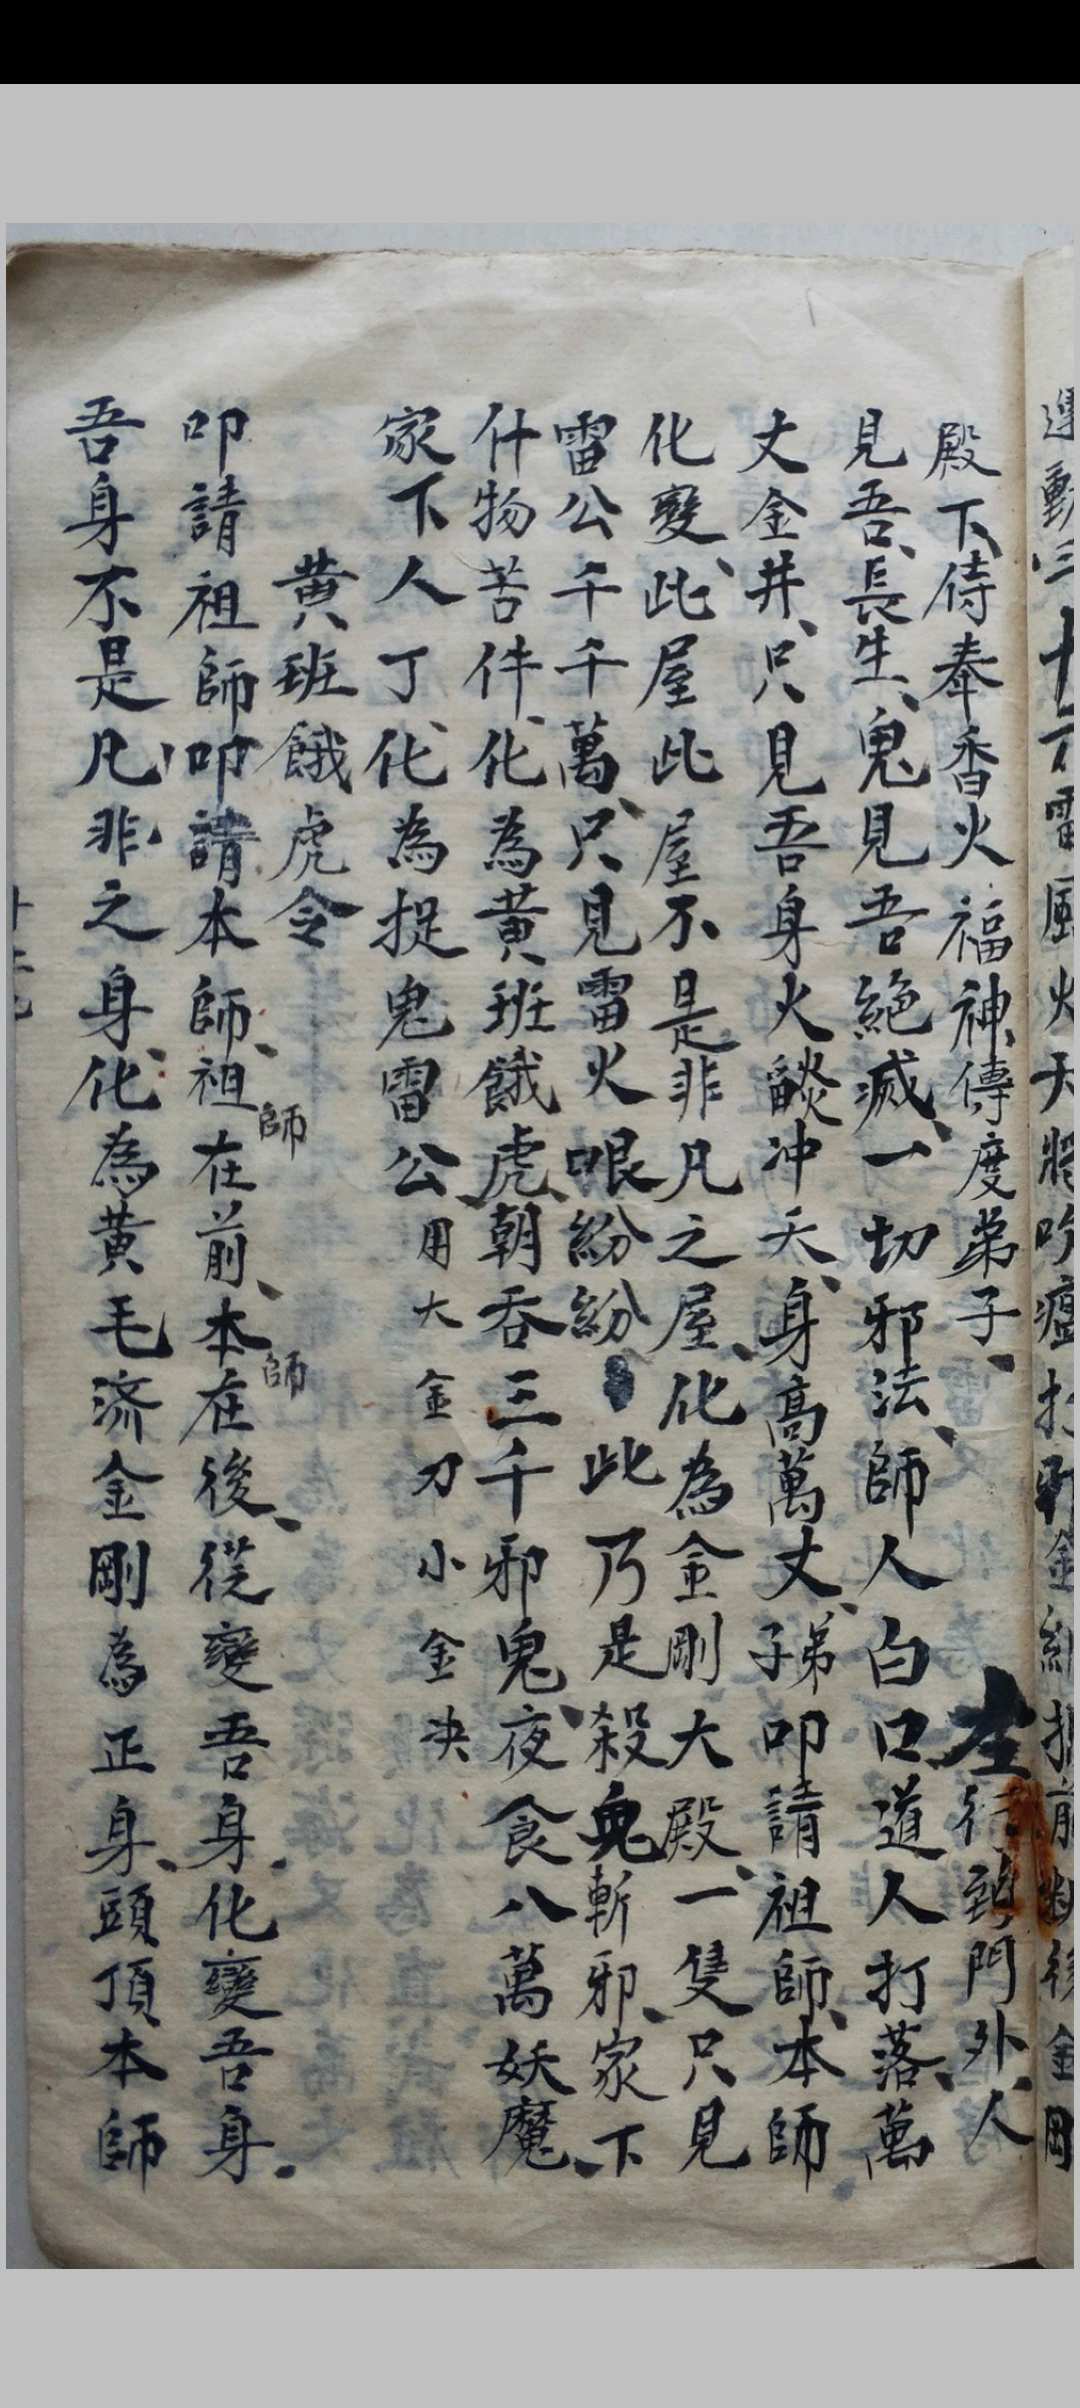 殿下、侍奉香火福神、傳度弟子、 行到門外、人
見吾、長生、鬼見吾絕滅、一切邪法、師人白口道人打落、萬
丈金井、只見吾身火燄冲天、身高萬丈、子弟叩請祖師、本師
化變、此屋此屋不是非凡之屋、化為金剛大殿、一隻只見
雷公千千萬、只見雷火哏紛紛 此乃是殺鬼斬邪、家下
什物苦件、化為黃班餓虎、朝吞三千邪鬼、夜食八萬妖魔、
家下人丁、化為捉鬼雷公、用大金刀小金决
黃班餓虎令
叩請祖師叩請本師、祖師在前、本師在後、從變吾身、化變吾身、
吾身不是凡非之身、化為黃毛济金剛為正身、頭頂本師